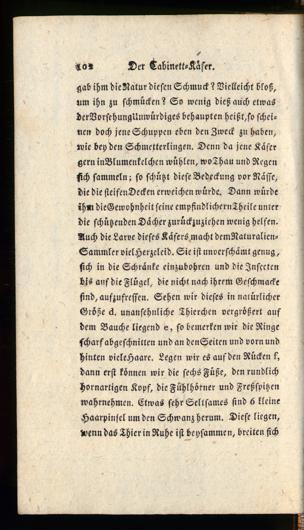 102 Der Cabinett-Käfer.
gab ihm die Natur diesen Schmuck? Vielleicht bloß,
um ihn zu schmücken? So wenig dieß auch etwas
der Vorsehung Unwürdiges behaupten heißt, so schei-
nen doch jene Schuppen eben den Zweck zu haben,
wie bey den Schmetterlingen. Denn da jene Käfer
gern in Blumenkelchen wühlen, wo Thau und Regen
sich sammeln; so schützt diese Bedeckung vor Nässe,
die die steifen Decken erweichen würde. Dann würde
ihm die Gewohnheit seine empfindlichern Theile unter
die schützenden Dächer zurückzuziehen wenig helfen.
Auch die Larve dieses Käfers macht dem Naturalien-
Sammler viel Herzeleid. Sie ist unverschämt genug,
sich in die Schränke einzubohren und die Insecten
bis auf die Flügel, die nicht nach ihrem Geschmacke
sind, aufzufressen. Sehen wir dieses in natürlicher
Größe d. unansehnliche Thierchen vergrößert auf
dem Bauche liegend e, so bemerken wir die Ringe
scharf abgeschnitten und an den Seiten und vorn und
hinten viele Haare. Legen wir es auf den Rücken f,
dann erst können wir die sechs Füße, den rundlich
hornartigen Kopf, die Fühlhörner und Freßspitzen
wahrnehmen. Etwas sehr Seltsames sind 6 kleine
Haarpinsel um den Schwanz herum. Diese liegen,
wenn das Thier in Ruhe ist beysammen, breiten sich